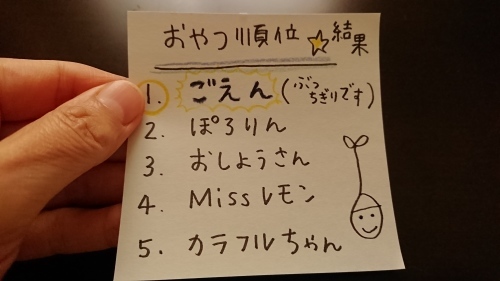 おやつ順位☆結果
1. ごえん (ぶっちぎりです)
2. ぽろりん
3. おしょうさん
4. Missレモン
5. カラフルちゃん